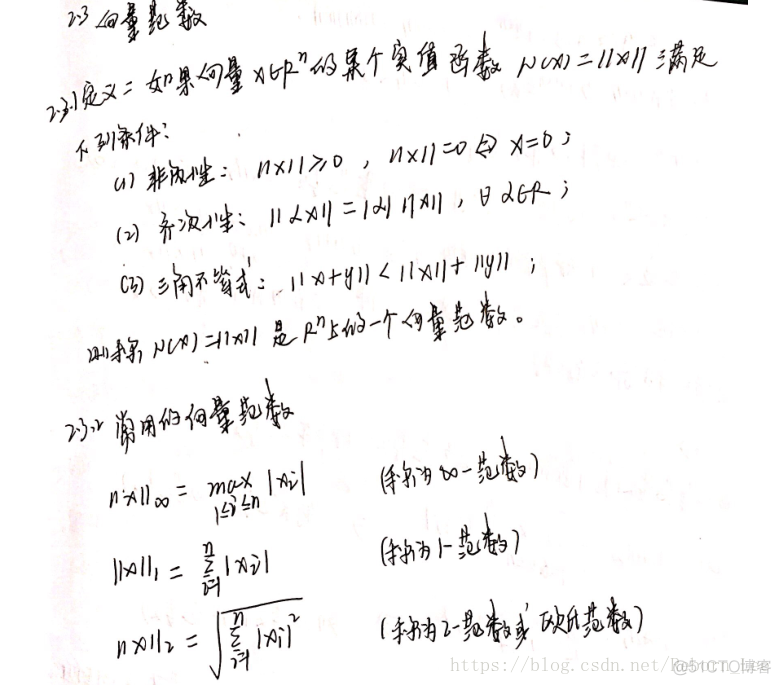 2.3 向量范数
2.3.1定义: 如果向量 x∈Rⁿ的某个实值函数 N(x)=||x||满足
下列条件:
(1) 非负性: ||x||≥0, ||x||=0⇔x=0;
(2) 齐次性: ||αx||=|α| ||x||, ∀α∈R;
(3) 三角不等式: ||x+y||<||x||+||y||;
则称 N(x)=||x|| 是Rⁿ上的一个向量范数。
2.3.2 常用的向量范数
||x||∞ = max |xi| (称为∞-范数)
1≤i≤n
||x||₁ = Σ_{i=1}^{n} |xi| (称为1-范数)
||x||₂ = √(Σ_{i=1}^{n} |xi|²) (称为2-范数或欧氏范数)
https://blog.csdn.net/
@51CTO